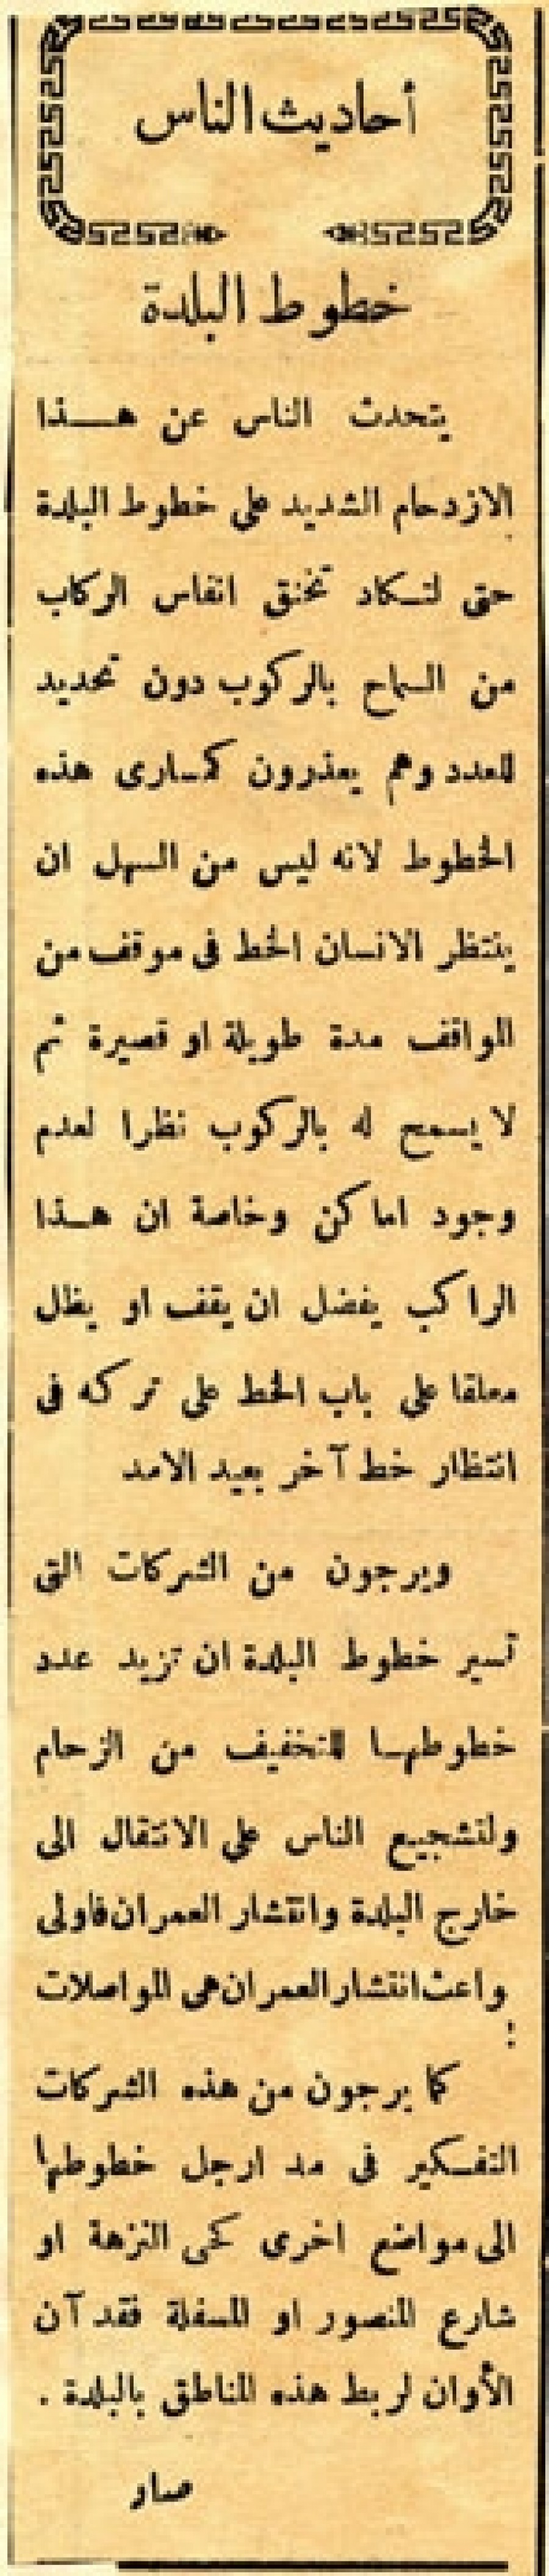 أحاديث الناس
خطوط البلدة
يتحدث الناس عن هـــذا
الازدحام الشديد على خطوط البلدة
حتى لتـكاد تخنق انفاس الركاب
من السماح بالركوب دون تحديد
للعدد وهم يعذرون كمسارى هذه
الخطوط لانه ليس من السهل ان
ينتظر الانسان الخط فى موقف من
المواقف مدة طويلة او قصيرة ثم
لا يسمح له بالركوب نظرا لعدم
وجود اماكن وخاصة ان هـذا
الراكب يفضل ان يقف او يظل
معلقا على باب الخط على تركه فى
انتظار خط آخر بعيد الامد
ويرجون من الشركات التى
تسير خطوط البلدة ان تزيد عدد
خطوطهـا للتخفيف من الزحام
ولتشجيع الناس على الانتقال الى
خارج البلدة وانتشار العمران فاولى
واعث انتشار العمران هى المواصلات
:
كما يرجون من هذه الشركات
التفـكير فى مد ارجل خطوطها
الى مواضع اخرى كحى النزهة او
شارع المنصور او المسفلة فقد آن
الأوان لربط هذه المناطق بالبلدة .
صار